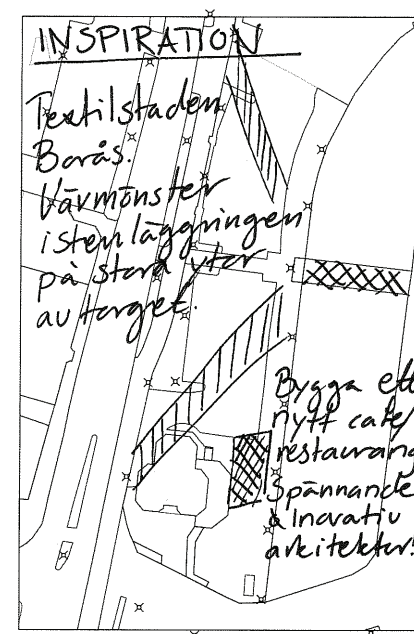 INSPIRATION
Textilstaden
Borås.
Vävmönster
i stenläggningen
på stora ytor
av torget.
Bygga ett
nytt cafe/
restaurang
Spännande
& Inovativ
arkitektur!